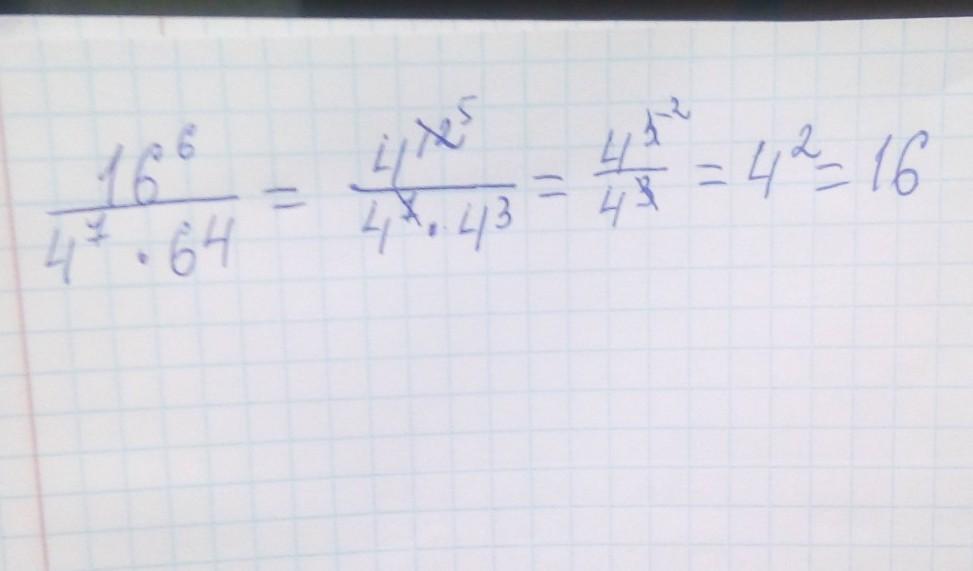 16^6 / (4^7 · 64) = 4^12^5 / (4^7 · 4^3) = 4^5^2 / 4^3 = 4^2 = 16